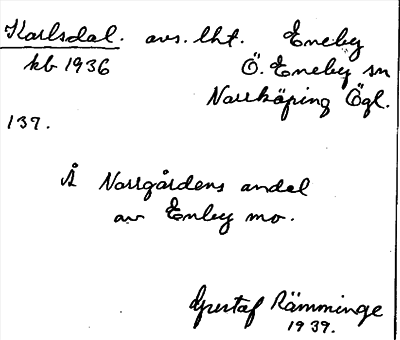 Karlsdal. avs. lht. Eneby
kb 1936 Ö. Eneby sn
Norrköping Ögl.
137.
Å Norrgårdens andel
av Enby mo.
Gustaf Rämminge
1939.